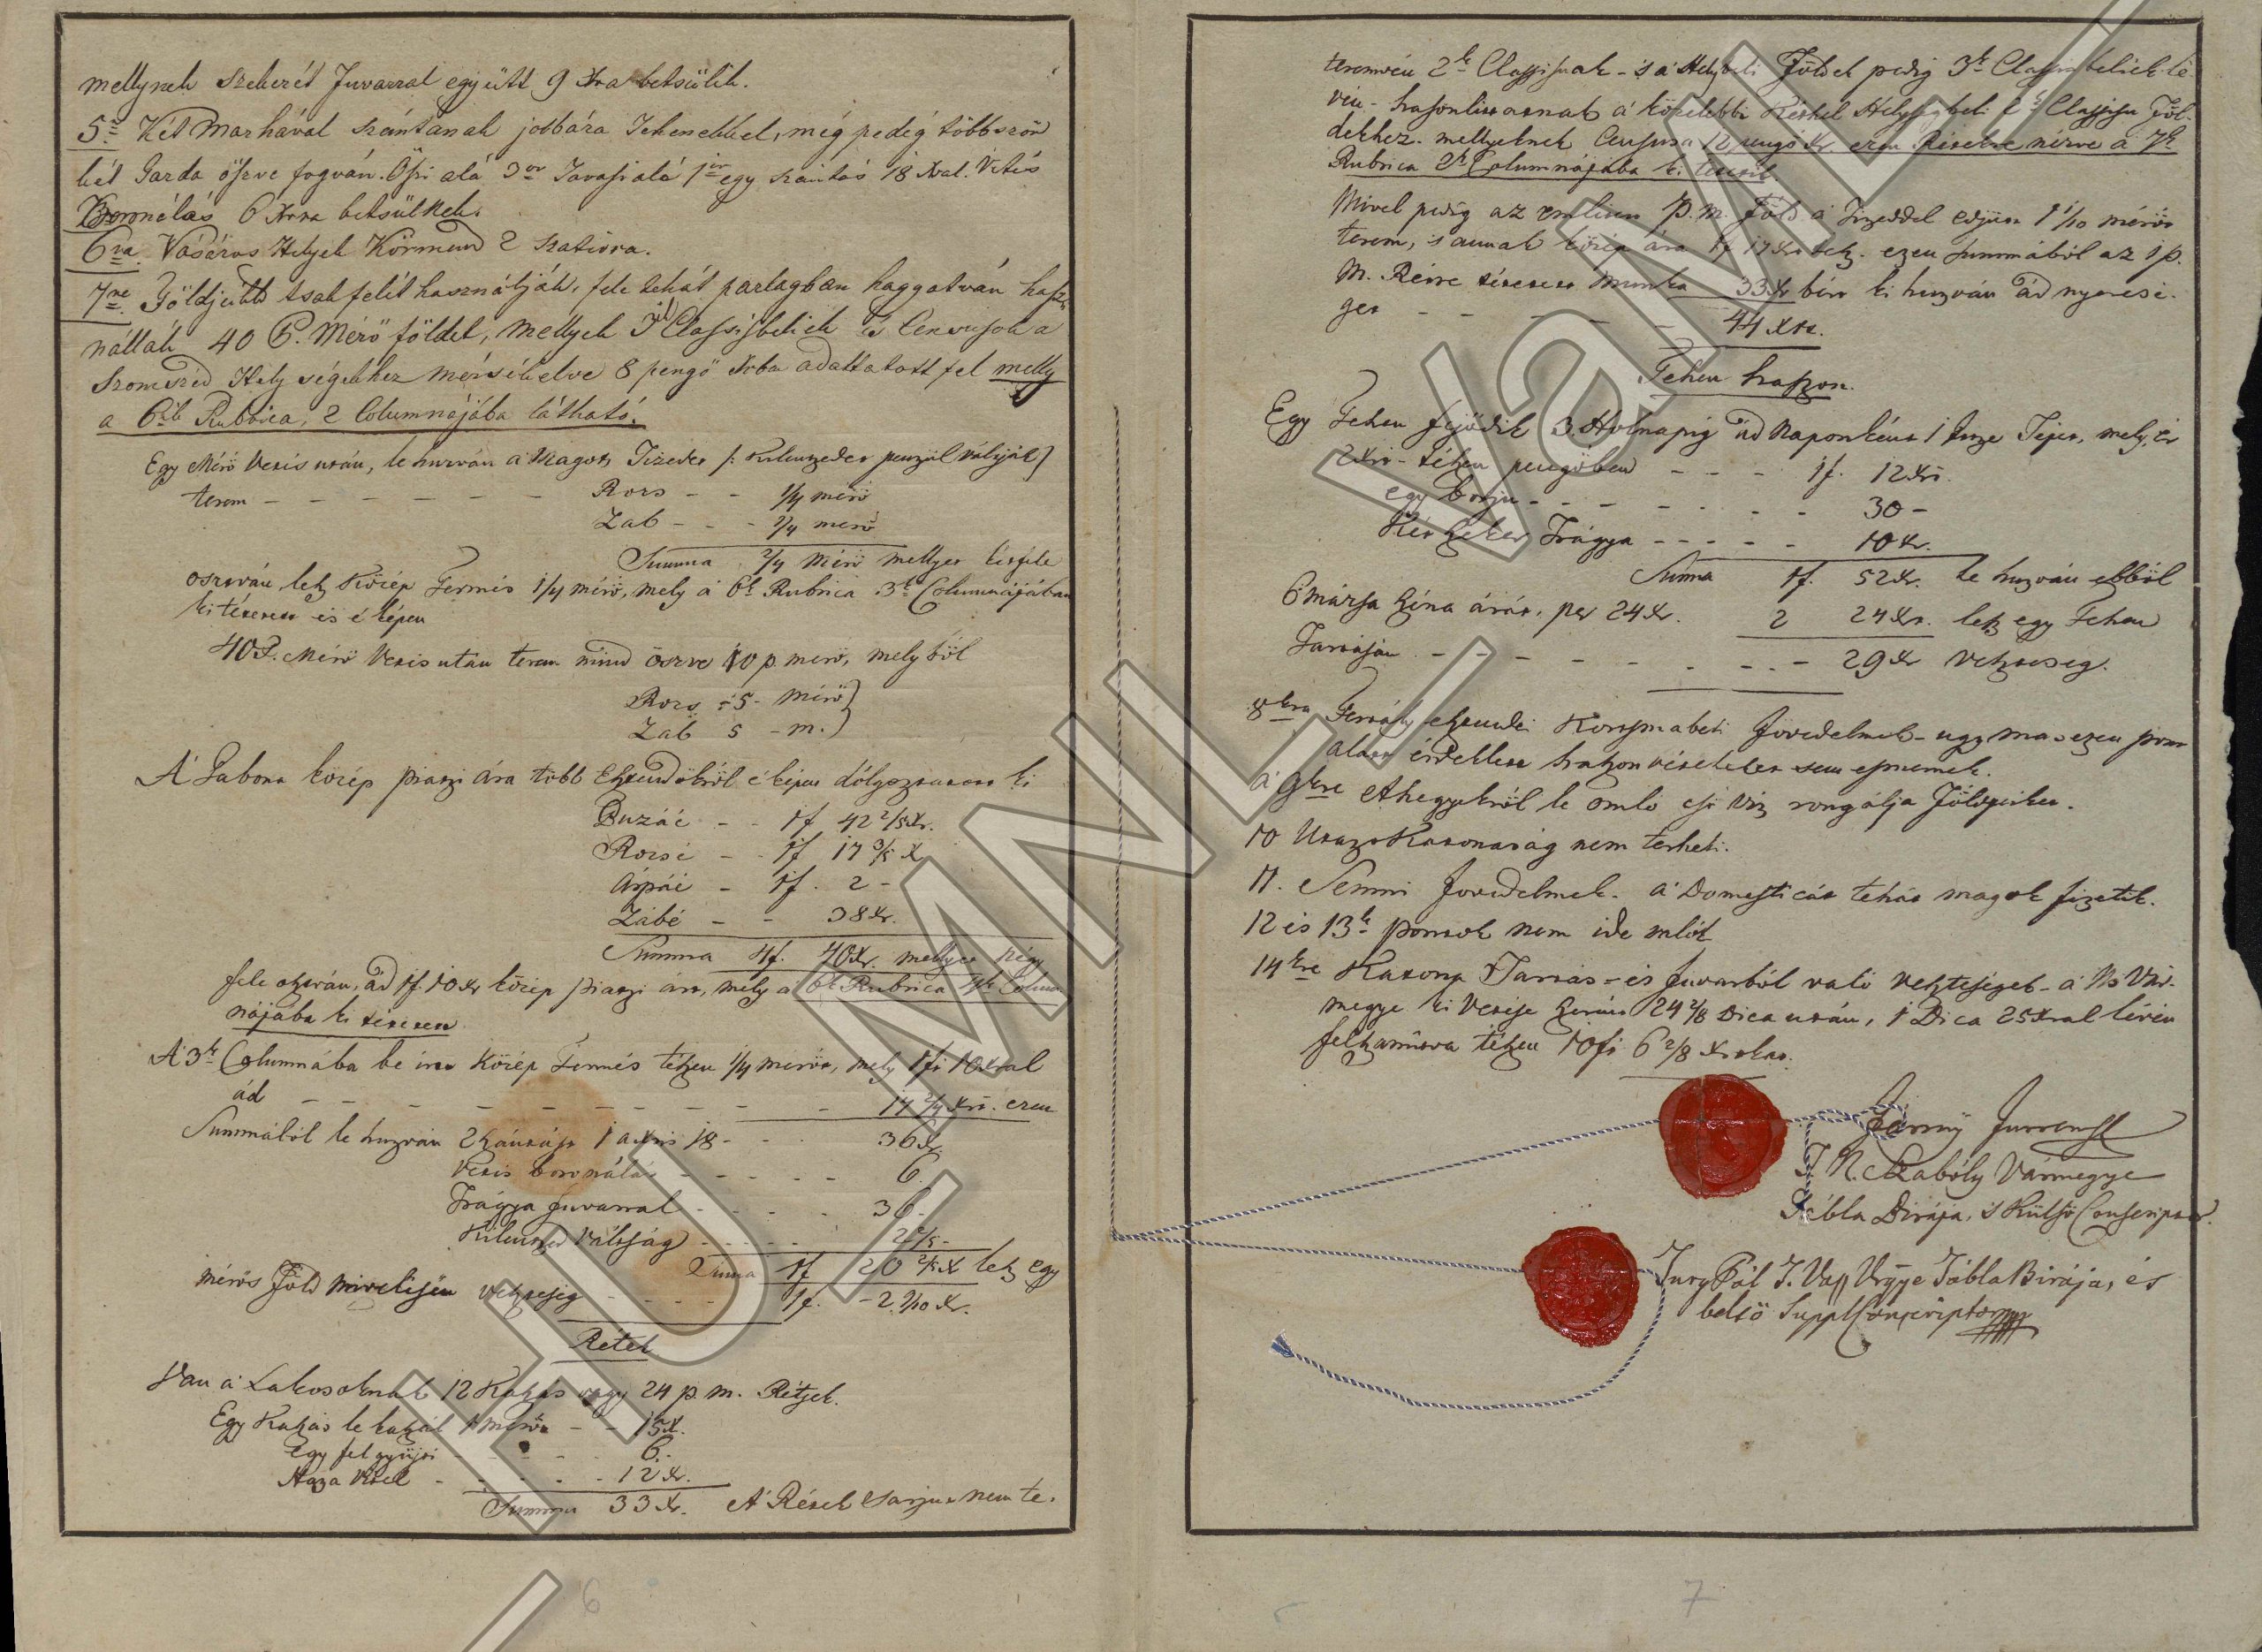 mellynek szekerét Fuvarral együtt 9 Xra betsülik.
5r Két Marhával szántanak jobbára Tehenekkel, még pedig többször
két Gazda öszve fogván. Öszi alá 3or Tavaszi alá 1ször egy szántás 18 Xral. Vetés
Boronálás 6 Xrra betsültetik.
6ra. Vásáros Helyek Körmend 2 statiora.
7re. Földjeiktt tsak felit használják, fele tehát parlagban haggatván hasz
nállak 40 P. Mérő földet, mellyek 3d Classisbeliek és Censusok a
Szomszéd Helységekhez mérsékelve 8 pengő Xrba adattatott fel melly
a 6ik Rubrica, 2 Columnájába látható.
Egy Mérő Vetés után, le huzván a Magot, Tizedet /: Kilenczedet pénzül váltják)
terem - - - - - - Rozs - - 1/4 mérő
Zab - - - 1/4 merő
Summa 2/4 Mérő mellyet kétfele
osztván lesz Közép Termés 1/4 mérő, mely a 6k Rubrica 3k Columnájában
ki tétetett és e képen
40 P. Mérő Vetés után terem mind öszve 10 p. merő, melyből
Rozs 5 - Mérő)
Zab 5 - m.)
A' Gabona közép piaczi ára több Esztendőkről e képen dólgoztatott ki
Buzáé - - 1f 42 2/5 Xr.
Rozsé - - 1f 17 3/5 X
Árpáé - 1f. 2 -
Zabé - - 38 Xr.
Summa 4f. 40 Xr. mellyet négy
fele osztván, ád 1f. 10 Xr közép piaczi árt, mely a 6k Rubrica 4k Colum
nájába ki tétetett
A' 3k Columnába be irtt Közép Termés tészen 1/4 merőt, mely 1 fr 10 Xral
ád - - - - - - - - - 17 2/4 Xrt. ezen
Summából le huzván 2 szántást 1 18 - - 36 X.
Vetés boronálás - - - - - 6.
Trágya fuvarral - - - - 36 -
Kilenczed Váltság - - - - 2 2/5 -
Summa 1f 20 2/5 X lesz egy
mérős Föld mivelésén veszteség - - - - 1f. - 2. 9/10 Xr.
Rétek
Van a' Lakosoknak 12 Kaszás vagy 24 p. m. Rétjek.
Egy Kaszás le kaszál 1 mérőt - - 15 X.
Egy fel gyüjti - - - - 6. -
Haza Vitel - - - - - 12 Xr.
Summa 33 Xr. A' Rétek Sarjut nem te-
6
teremvén 2k Classisuak - 's a Helybeli Földek pedig 3k Classisbeliek lé
vén - hasonlittatnak a' közelebbi Helységbeli 2k Classisu Föl-
dekhez. mellyeknek Censusa 12 pengő Xr. ezen Rétekre nérve a' 7k
Rubrica 2k Columnájába ki tétetik
Mivel pedig az emlitett P. M. Föld a' Tizeddel edjütt 1 1/10 mérőt
terem, 's annak közép ára 1f 17 Xrt tesz. ezen summából az 1 p.
M. Rétre tétetett munka 33 Xr bért ki huzván ád nyeresé-
get - - - - - 44 Xrt.
Tehen haszon.
Egy Tehen fejődik 3. Holnapig ád Naponként 1 Itcze Tejet, mely ér
2 Xrt - tészen pengőben - - - 1f. 12 Xrt.
egy borju - - - - - - - 30 -
Két szeker Trágya - - - - - 10 Xr.
Summa 1f. 52 Xr. le huzván ebből
6 mázsa széna árát, per 24 Xr. 2 24 Xr. lesz egy Tehen
Tartásán - - - - - - - - 29 Xr veszteség.
8kra Fertály esztendei Korcsmabeli Jövedelmek - ugy más ezen pont
alatt érdeklett haszonvételeket sem esmernek.
a 9kre A hegyekről le omló eső viz rongálja Földgyeiket.
10 Utazo Katonaság nem terheli.
11. Semmi Jövedelmek. a' Domesticát tehát magok fizetik.
12 és 13k pontok nem ide valók
14kre Katona Tartás - és fuvarból való veszteségek - a' Ns Vár-
megye ki vetése szerint 24 2/8 Dica után, 1 Dica 25 Xral lévén
felszamitva tészen 10 fr 6 2/8 Xrokat.
Jármÿ
T. N. Szabólts Vármegye
Tábla Birája, 's Külső Conscriptor.
Pál T. Vas Vrgye Tábla Birája, és
belső Suppl Conscriptor
7
HU MNL VaML